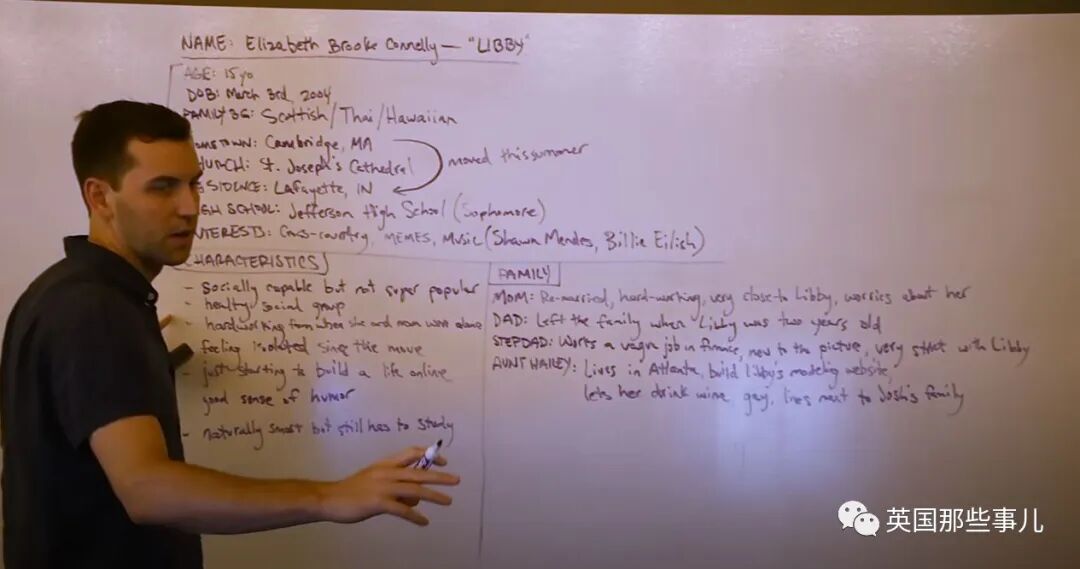 NAME: Elizabeth Brooke Connelly — "LIBBY"
AGE: 15 yo
DOB: March 3rd, 2004
FAMILY BG: Scottish/Thai/Hawaiian
OMETOWN: Cambridge, MA
moved this summer
HURCH: St. Joseph's Cathedral
ESIDENCE: Lafayette, IN
IGH SCHOOL: Jefferson High School (Sophomore)
NTERESTS: Cross-country, MEMES, Music (Shawn Mendes, Billie Eilish)
CHARACTERISTICS
- socially capable but not super popular
- healthy social group
- hardworking from when she and mom were alone
feeling isolated since the move
- just starting to build a life online
good sense of humor
- naturally smart but still has to study
FAMILY
MOM: Re-married, hard-working, very close to Libby, worries about her
DAD: Left the family when Libby was two years old
STEPDAD: Works a vague job in finance, new to the picture, very strict with Libby
AUNT HAILEY: Lives in Atlanta, build Libby's modeling website,
lets her drink wine, gay, lives next to Josh's family
英国那些事儿